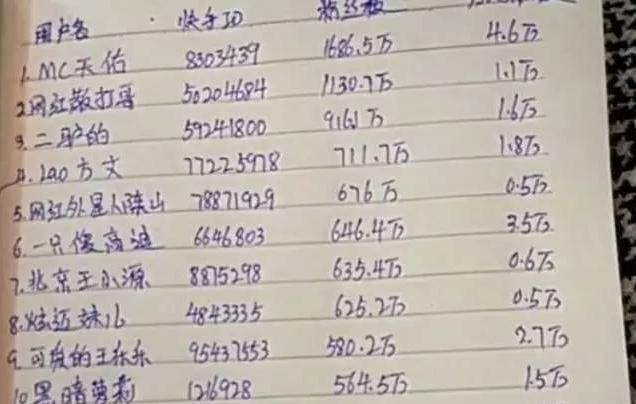 用户名 快手ID 粉丝数
1. MC天佑 8303439 1686.5万 4.6万
2. 网红散打哥 50204684 1130.7万 1.1万
3. 二驴的 59241800 916.1万 1.6万
4. 140方丈 77225978 711.7万 1.8万
5. 网红外星人陈山 78871929 676万 0.5万
6. 一只傻高迪 6646803 646.4万 3.5万
7. 北京王小源 8875298 635.4万 0.6万
8. 炫迈妹儿 4843335 625.2万 0.5万
9. 可爱的王乐乐 95437553 580.2万 2.7万
10 黑暗萝莉 1216928 564.5万 1.5万